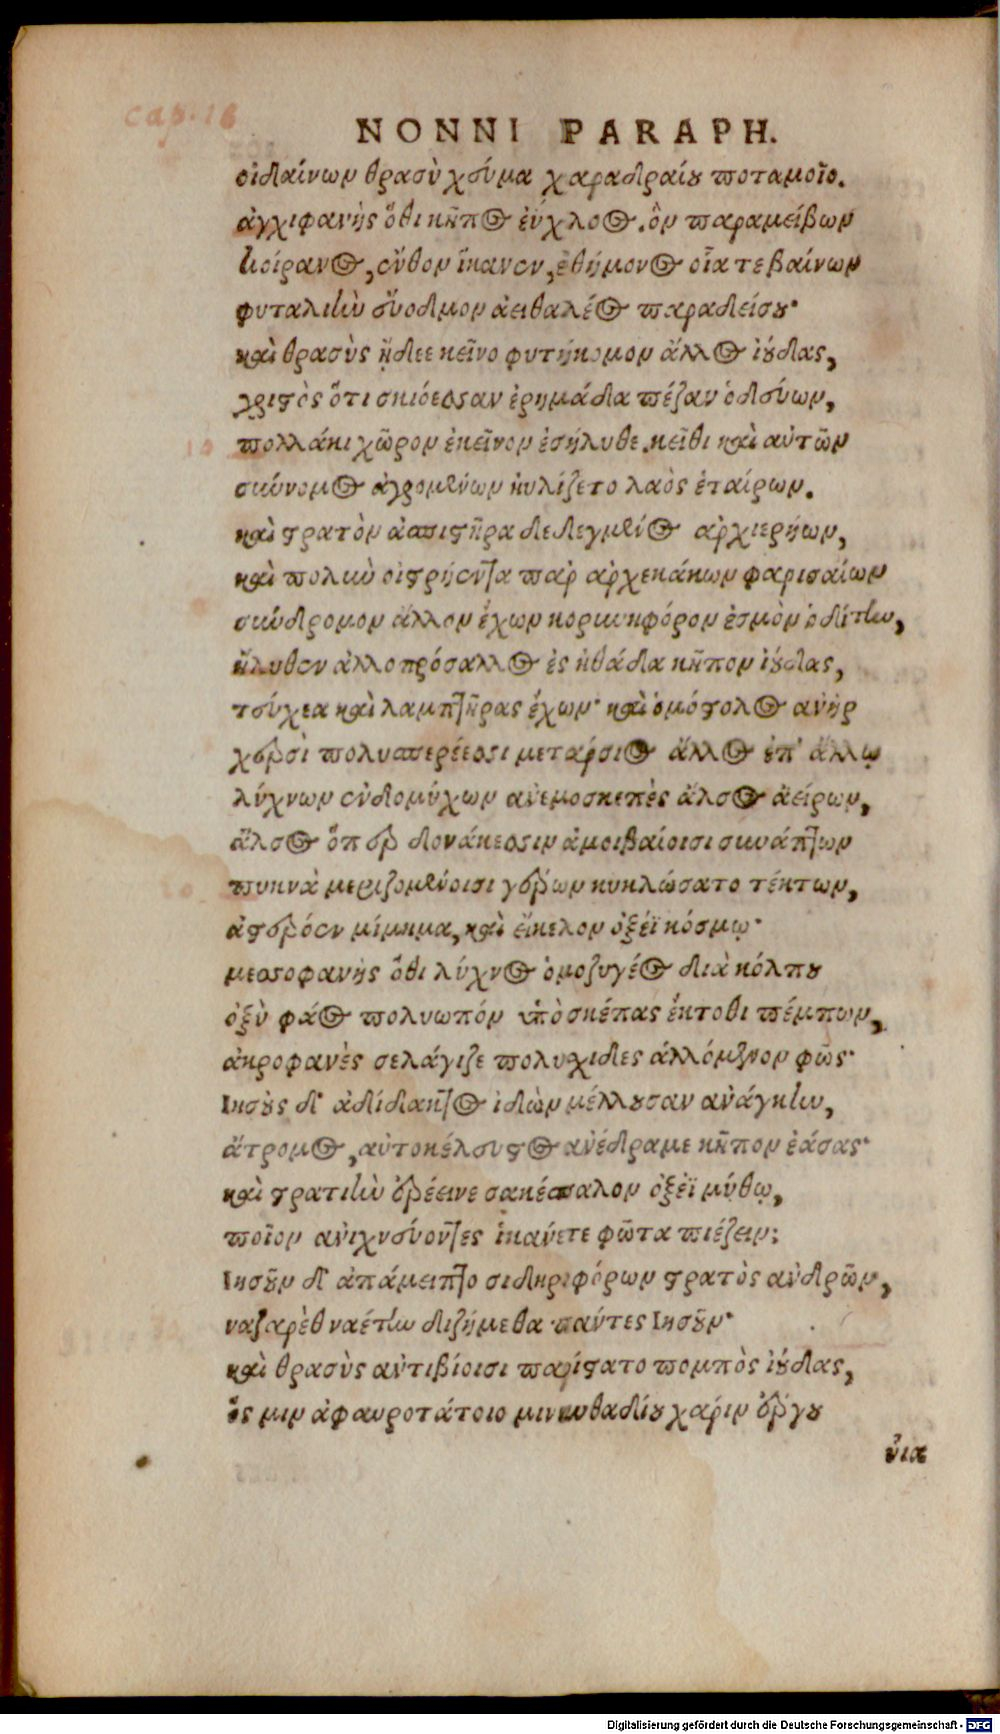 Cap. 18
NONNI PARAPH.
οἰδαίνων θρασὺ χεῦμα χαραδραίου ποταμοῖο.
ἀγχιφανὴς ὅθι κῆπος ἐΰχλοος. ὃν παραμείβων
κοίρανος, ἔνθον ἵκανεν, ἐθήμονος οἷά τε βαίνων
φυταλιὴν εὔοδμον ἀειθαλέος παραδείσου·
καὶ θρασὺς ᾔδεε κεῖνο φυτήκομον ἄλλος ἰούδας,
χριστὸς ὅτι σκιόεσσαν ἐρημάδα πέζαν ὁδεύων,
10 πολλάκι χῶρον ἐκεῖνον ἐσήλυθε. κεῖθι καὶ αὐτῶν
σύννομος ἀγρομένων κυλίζετο λαὸς ἑταίρων.
καὶ στρατὸν ἀσπιστῆρα δεδεγμένος ἀρχιερήων,
καὶ πολὺν οἰστρήεντα παρ ἀρχεκάκων φαρισαίων
σύνδρομον ἄλλον ἔχων κορυνηφόρον ἐσμὸν ὁδίτην,
ἤλυθεν ἀλλοπρόσαλλος ἐς ἠθάδα κῆπον ἰούδας,
τεύχεα καὶ λαμπτῆρας ἔχων· καὶ ὁμόστολος ἀνὴρ
χερσὶ πολυσπερέεσσι μετάρσιος ἄλλος ἐπ' ἄλλῳ
λύχνων ἐνδομύχων ἀνεμοσκεπὲς ἄλσος ἀείρων,
ἄλσος ὅπερ δονάκεσσιν ἀμοιβαίοισι συνάπτων
πυκνὰ μεριζομένοισι γέρων κυκλώσατο τέκτων,
ἀστερόεν μίμημα, καὶ εἴκελον ὀξέϊ κόσμῳ·
μεσσοφανὴς ὅθι λύχνος ὁμοζυγέος διὰ κόλπου
ὀξὺ φάος πολυωπόν ὑπὸ σκέπας ἔκτοθι πέμπων,
ἀκροφανὲς σελάγιζε πολυσχιδὲς ἁλλόμενον φῶς·
Ιησοὺς δ' ἀδίδακτος ἰδὼν μέλλουσαν ἀνάγκην,
ἄτρομος, αὐτοκέλευστος ἀνέδραμε κῆπον ἐάσας·
καὶ στρατιὴν ἐρέεινε σακέσπαλον ὀξέϊ μύθῳ,
ποῖον ἀνιχνεύοντες ἱκάνετε φῶτα πιέζειν;
Ιησοῦν δ' ἀπάμειπτο σιδηροφόρων στρατὸς ἀνδρῶν,
ναζαρὲθ ναέτην διζήμεθα πάντες Ιησοῦν·
καὶ θρασὺς ἀντιβίοισι παρίστατο πομπὸς ἰούδας,
ὅς μιν ἀφαυροτάτοιο μινυνθαδίου χάριν ἔργου
υἷα
Digitalisierung gefördert durch die Deutsche Forschungsgemeinschaft - DFG